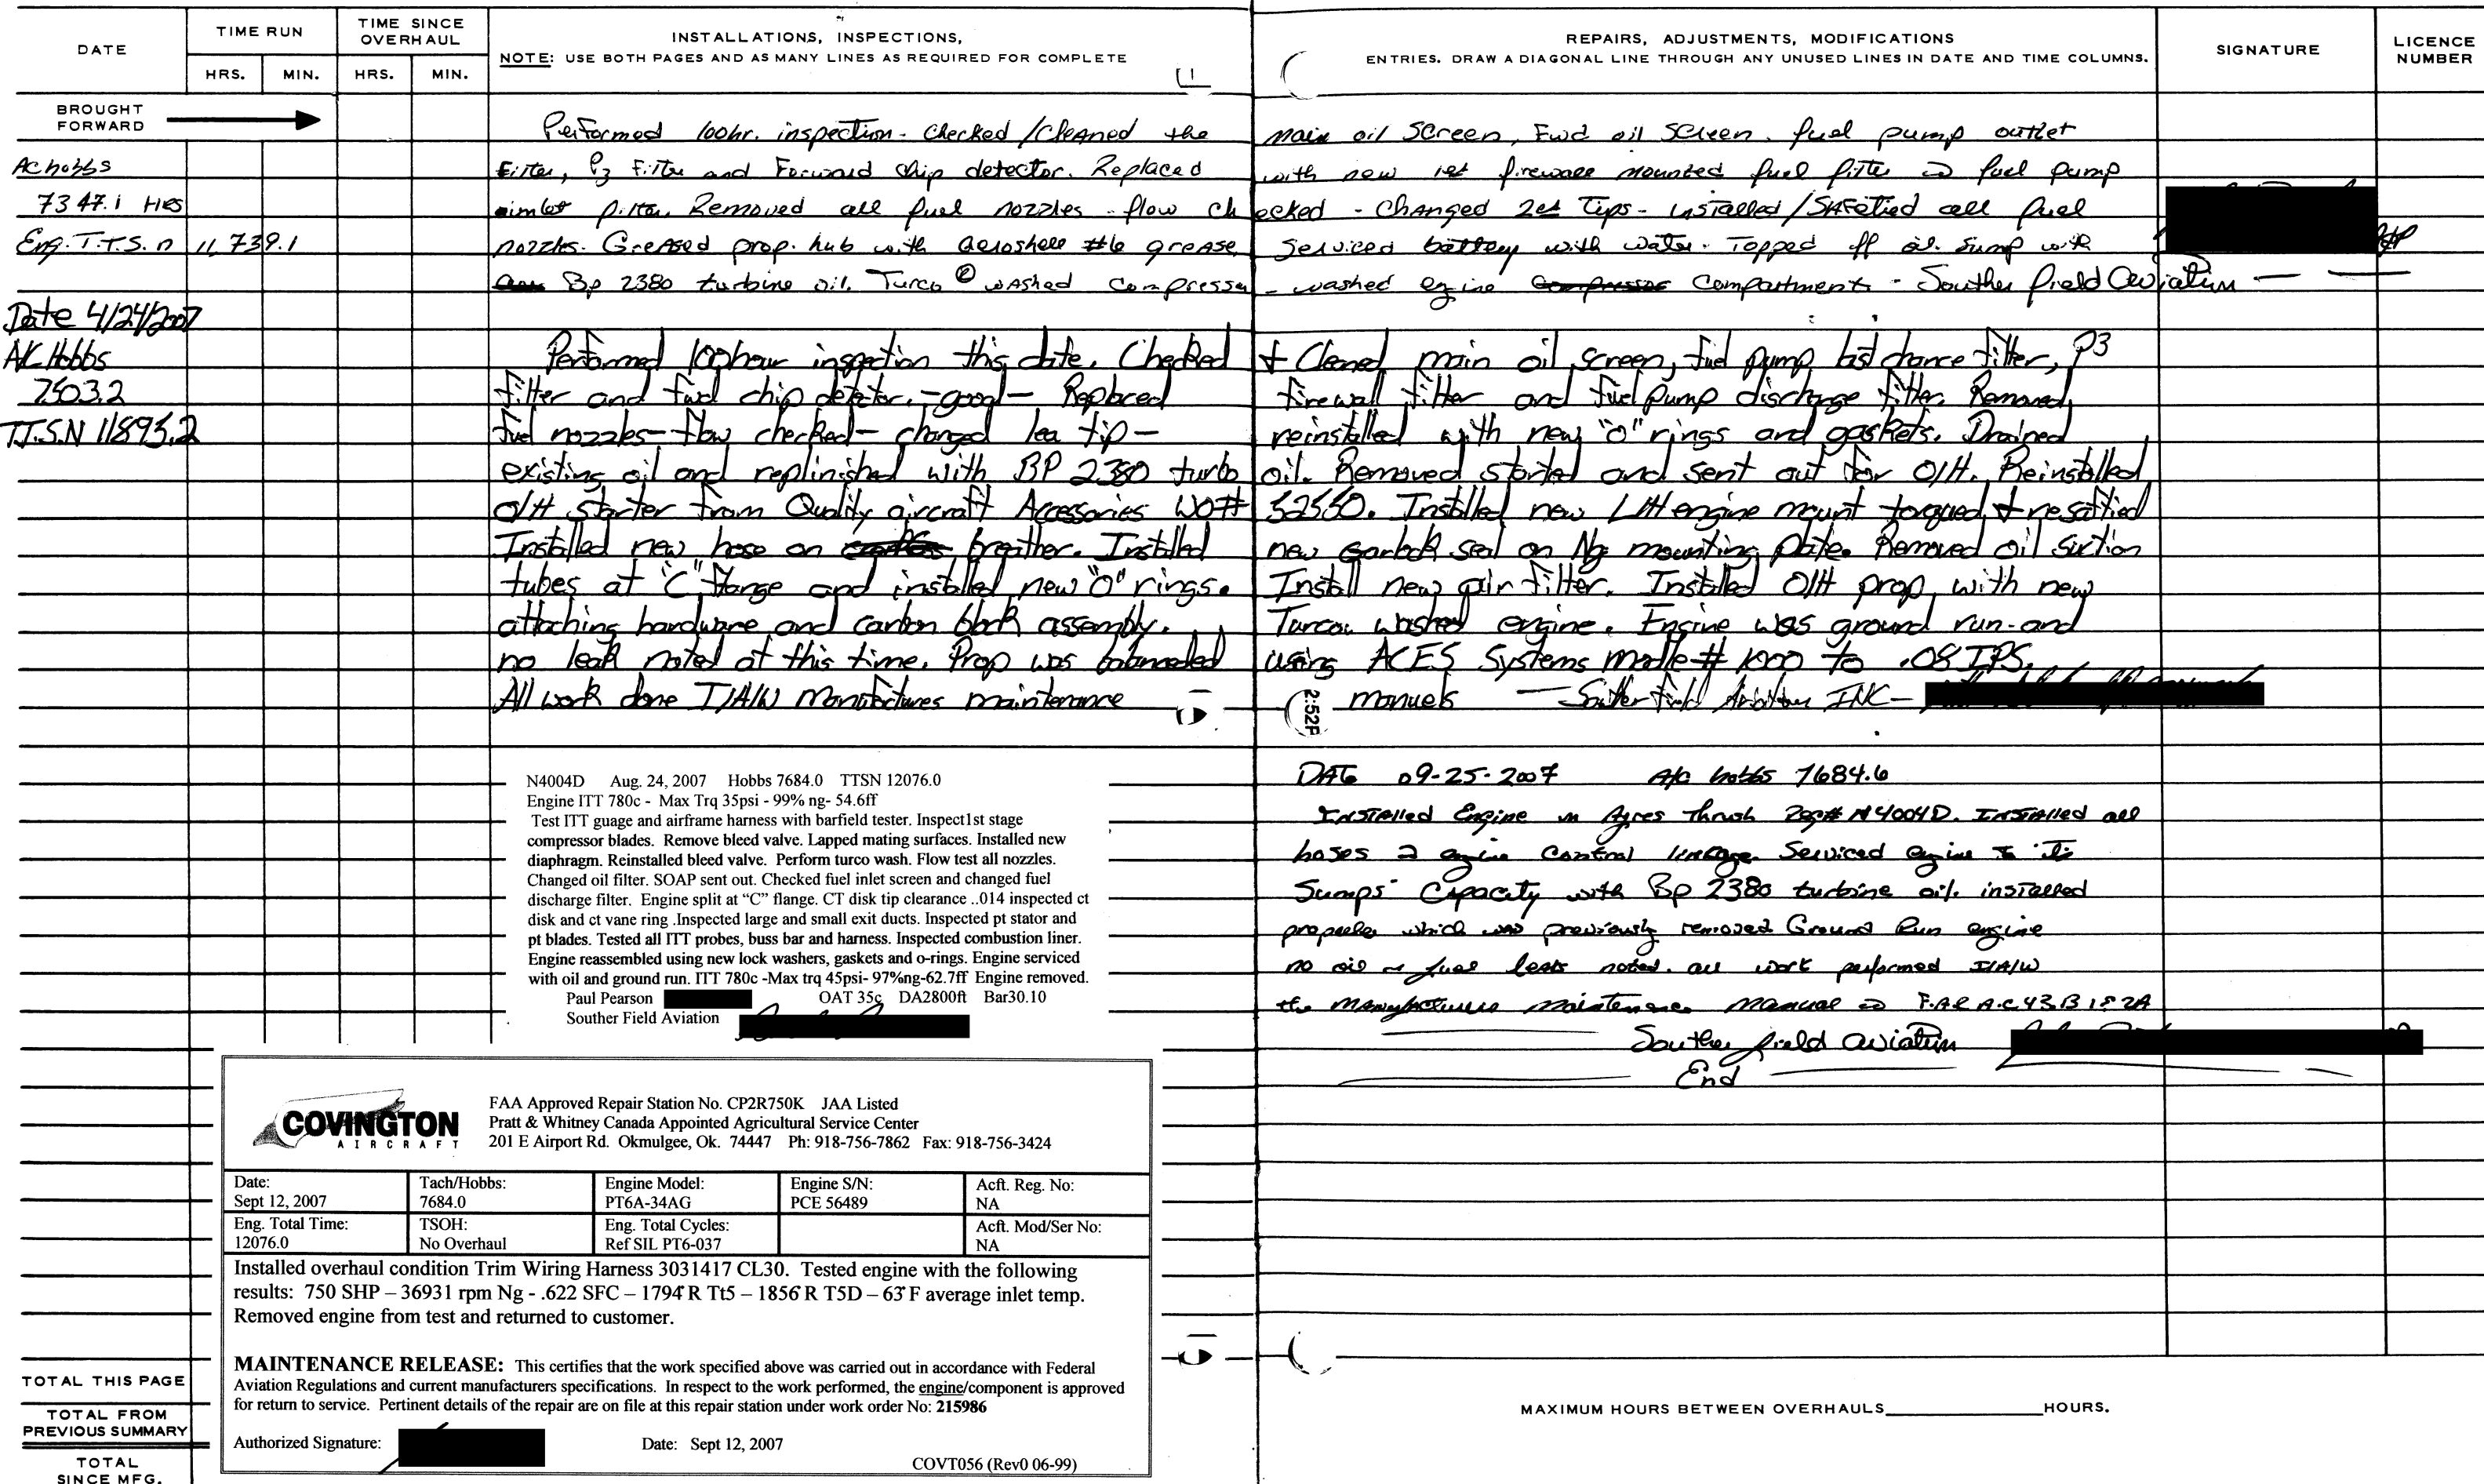 DATE
TIME RUN
TIME SINCE OVERHAUL
HRS. MIN. HRS. MIN.
INSTALLATIONS, INSPECTIONS,
NOTE: USE BOTH PAGES AND AS MANY LINES AS REQUIRED FOR COMPLETE
REPAIRS, ADJUSTMENTS, MODIFICATIONS
ENTRIES. DRAW A DIAGONAL LINE THROUGH ANY UNUSED LINES IN DATE AND TIME COLUMNS.
SIGNATURE
LICENCE NUMBER
BROUGHT FORWARD
AC hobbs
7347.1 HRS
Eng. T.T.S.n 11,739.1
Performed 100hr. inspection - checked/cleaned the main oil screen, Fwd oil screen. fuel pump outlet
Filter, P3 Filter and Forward chip detector. Replaced with new 1st firewall mounted fuel filter fuel pump
filter. Removed all fuel nozzles - flow checked - changed 2ea Tips - installed/SAFetied all fuel
nozzles. Greased prop. hub with aeroshell #6 grease, Serviced battery with water. Topped off oil sump with
Bp 2380 turbine oil. Turco washed compressor - washed engine compartment - Souther Field Aviation
Date 4/24/2007
A/C Hobbs
7503.2
T.T.S.N 11895.2
Performed 100hour inspection this date. Checked + Cleaned main oil screen, fuel pump last chance filter, P3
filter and fwd chip detector. -good- Replaced firewall filter and fuel pump discharge filter. Removed,
fuel nozzles - flow checked - changed 1ea tip - reinstalled with new "o" rings and gaskets. Drained
existing oil and replinished with BP 2380 turbo oil. Removed started and sent out for O/H. Reinstalled
O/H starter from Quality aircraft Accessories WO# 32550. Installed new L/H engine mount torqued + resaftied
Installed new hose on breather. Installed new Garlock seal on Ng mounting plate. Removed oil suction
tubes at "C" flange and installed new "O" rings. Install new air filter. Installed O/H prop, with new
attaching hardware and carbon block assembly. Turco washed engine. Engine was ground run-and
no leak noted at this time. Prop was balanceded using ACES Systems modle # 1000 to .08 IPS.
All work done I/A/W Manufactures maintenance manuels — Souther Field Aviation INC -
2:52P
N4004D Aug. 24, 2007 Hobbs 7684.0 TTSN 12076.0
Engine ITT 780c - Max Trq 35psi - 99% ng- 54.6ff
Test ITT guage and airframe harness with barfield tester. Inspect1st stage
compressor blades. Remove bleed valve. Lapped mating surfaces. Installed new
diaphragm. Reinstalled bleed valve. Perform turco wash. Flow test all nozzles.
Changed oil filter. SOAP sent out. Checked fuel inlet screen and changed fuel
discharge filter. Engine split at “C” flange. CT disk tip clearance ..014 inspected ct
disk and ct vane ring .Inspected large and small exit ducts. Inspected pt stator and
pt blades. Tested all ITT probes, buss bar and harness. Inspected combustion liner.
Engine reassembled using new lock washers, gaskets and o-rings. Engine serviced
with oil and ground run. ITT 780c -Max trq 45psi- 97%ng-62.7ff Engine removed.
Paul Pearson OAT 35c DA2800ft Bar30.10
Souther Field Aviation
DATE 09-25-2007 A/C hobbs 7684.6
Installed Engine in Ayres Thrush Reg# N4004D. Installed all
hoses engine control linkage. Serviced engine to its
Sumps Capacity with Bp 2380 turbine oil. installed
propeller which was previously removed Ground Run engine
no oil or fuel leaks noted. all work performed I/A/W
the Manufacturers Maintenance Manual F.A.R A.C 43.13 1B 2A
Souther Field Aviation
End
COVINGTON
AIRCRAFT
FAA Approved Repair Station No. CP2R750K JAA Listed
Pratt & Whitney Canada Appointed Agricultural Service Center
201 E Airport Rd. Okmulgee, Ok. 74447 Ph: 918-756-7862 Fax: 918-756-3424
Date: Tach/Hobbs: Engine Model: Engine S/N: Acft. Reg. No:
Sept 12, 2007 7684.0 PT6A-34AG PCE 56489 NA
Eng. Total Time: TSOH: Eng. Total Cycles: Acft. Mod/Ser No:
12076.0 No Overhaul Ref SIL PT6-037 NA
Installed overhaul condition Trim Wiring Harness 3031417 CL30. Tested engine with the following
results: 750 SHP – 36931 rpm Ng - .622 SFC – 1794°R Tt5 – 1856°R T5D – 63°F average inlet temp.
Removed engine from test and returned to customer.
MAINTENANCE RELEASE: This certifies that the work specified above was carried out in accordance with Federal
Aviation Regulations and current manufacturers specifications. In respect to the work performed, the engine/component is approved
for return to service. Pertinent details of the repair are on file at this repair station under work order No: 215986
Authorized Signature: Date: Sept 12, 2007
COVT056 (Rev0 06-99)
TOTAL THIS PAGE
TOTAL FROM PREVIOUS SUMMARY
TOTAL SINCE MFG.
MAXIMUM HOURS BETWEEN OVERHAULS HOURS.